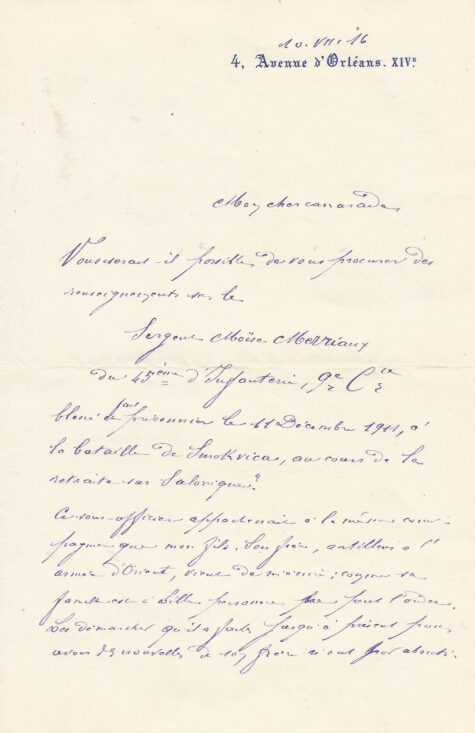 10. VII. 16
4, Avenue d'Orléans. XIVe
Mon cher camarade,
Vous serait-il possible de vous procurer des
renseignements sur le
Sergent Moïse Merriaux
du 45ième d'Infanterie, 9e Cie
blessé et fait prisonnier le 11 Décembre 1915, à
la bataille de Smokvica, au cours de la
retraite sur Salonique?
Ce sous-officier appartenait à la même com-
pagnie que mon fils. Son frère, artilleur à l'
armée d'Orient, vient de m'écrire; comme sa
famille est à Lille personne ne peut l'aider.
Les démarches qu'il a faites jusqu'à présent pour
avoir des nouvelles de son frère n'ont pas abouti.